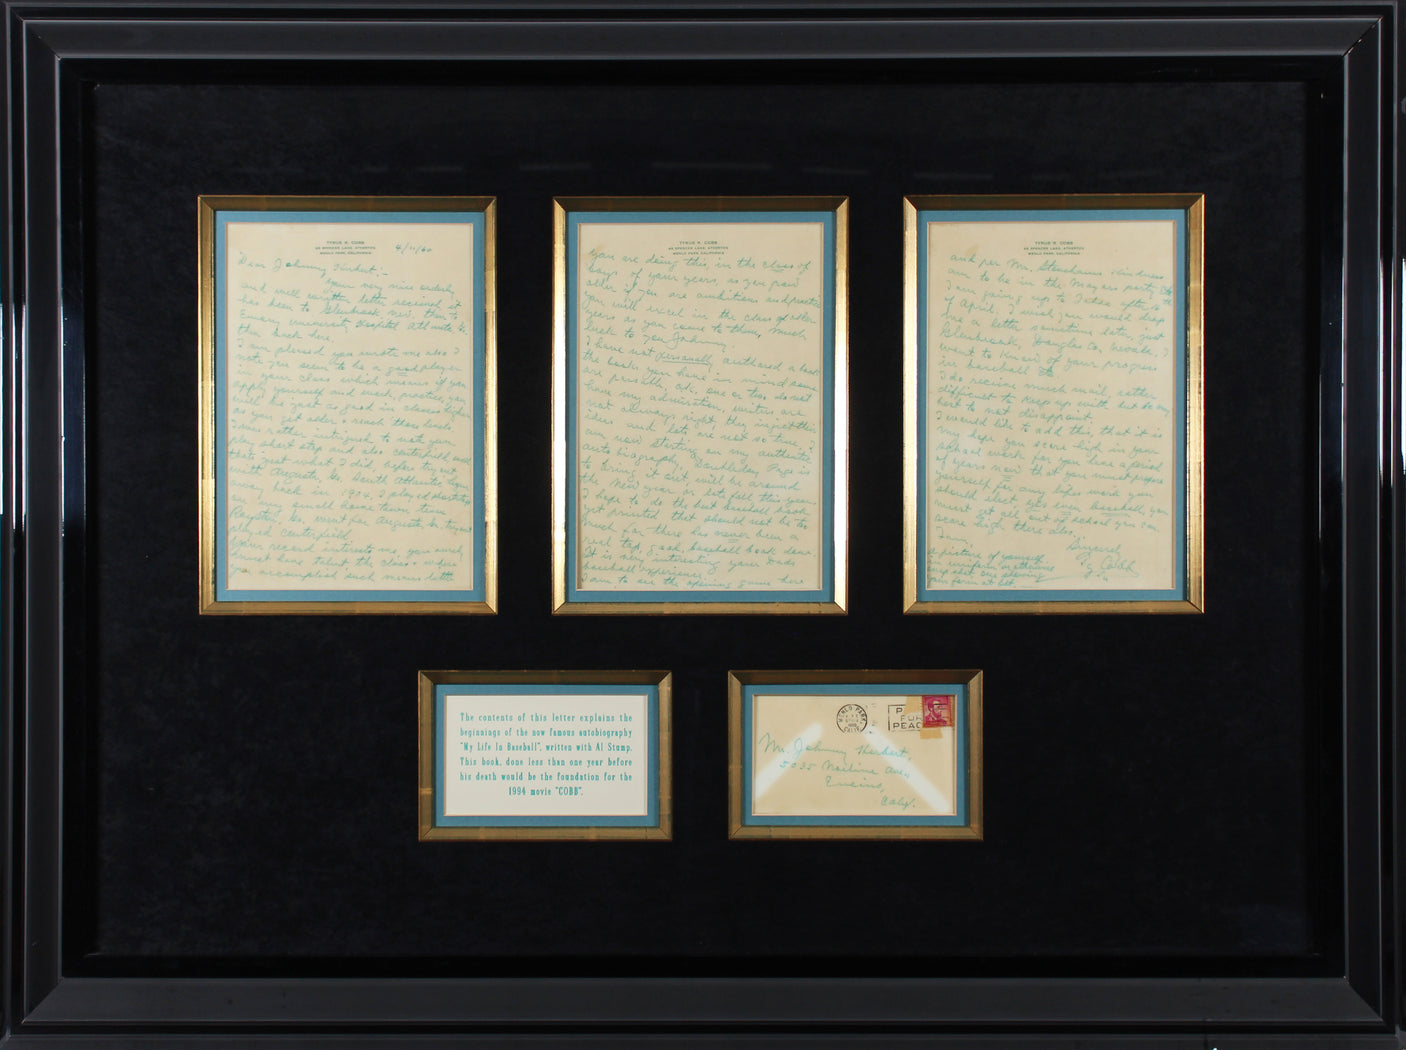 TYRUS R. COBB
48 SPENCER LANE, ATHERTON
MENLO PARK, CALIFORNIA
4/11/60
Dear Johnny Herbert;-
Your very nice orderly
and well written letter received it
has been to Glenbrook Nev. then to
Emory University Hospital Atlanta Ga.
then back here.
I am pleased you wrote me also I
note you seem to be a good player
in your class which means if you
apply yourself and work, practice, you
will be just as good in classes higher
as you get older & reach those levels
I was rather intrigued to note you
play short stop and also centerfield, well
that's just what I did, before try out
with Augusta, Ga. South Atlantic League
away back in 1904. I played shortstop
on my small home town team
Royston, Ga. went for Augusta, Ga. try out
played centerfield.
Your record interests me, you surely
must have talent the class & where
you accomplished such means little
TYRUS R. COBB
48 SPENCER LANE, ATHERTON
MENLO PARK, CALIFORNIA
you are doing this, in the class of
boys of your years, as you grow
older if you are ambitious and practice
you will excel in the class of older
years as you come to them, much
luck to you Johnny.
I have not personally authored a book
the books you have in mind some
are possibly o.k. one or two do not
have my admiration, writers are
not always right, they inject this
ideas and lots are not so true, I
am now starting on my authentic
auto biography, Doubleday Pogo is
to bring it out, will be around
the New Year or late fall this year.
I hope to do the best baseball book
yet printed that should not be too
much for there has never been a
real top, good, baseball book done.
It is very interesting your Dads
baseball experience,
I am to see the opening game here
TYRUS R. COBB
48 SPENCER LANE, ATHERTON
MENLO PARK, CALIFORNIA
and per Mr. Stonehams kindness
am to be in the Mayors party
I am going up to Tahoe after
of April, I wish you would drop
me a letter sometime later, just
Glenbrook, Douglas Co, Nevada, I
want to know of your progress
in baseball etc
I do receive much mail, rather
difficult to keep up with but do my
best to not disappoint
I would like to add this, that it is
my hope you score high in your
school work for you have a period
of years now that you must prepare
yourself for any lifes work you
should elect, yes even baseball, you
must get all out of school you can.
score high there also.
I am,
Sincerely
Ty Cobb
a picture of yourself
in uniform or otherwise
snap shot, one showing
your form at bat.
The contents of this letter explains the
beginnings of the now famous autobiography
"My Life In Baseball", written with Al Stump.
This book, done less than one year before
his death would be the foundation for the
1994 movie "COBB".
MENLO PARK,
1960
CALIF.
P
FOR
PEACE
Mr. Johnny Herbert,
5035 Ave.
Encino,
Calif.